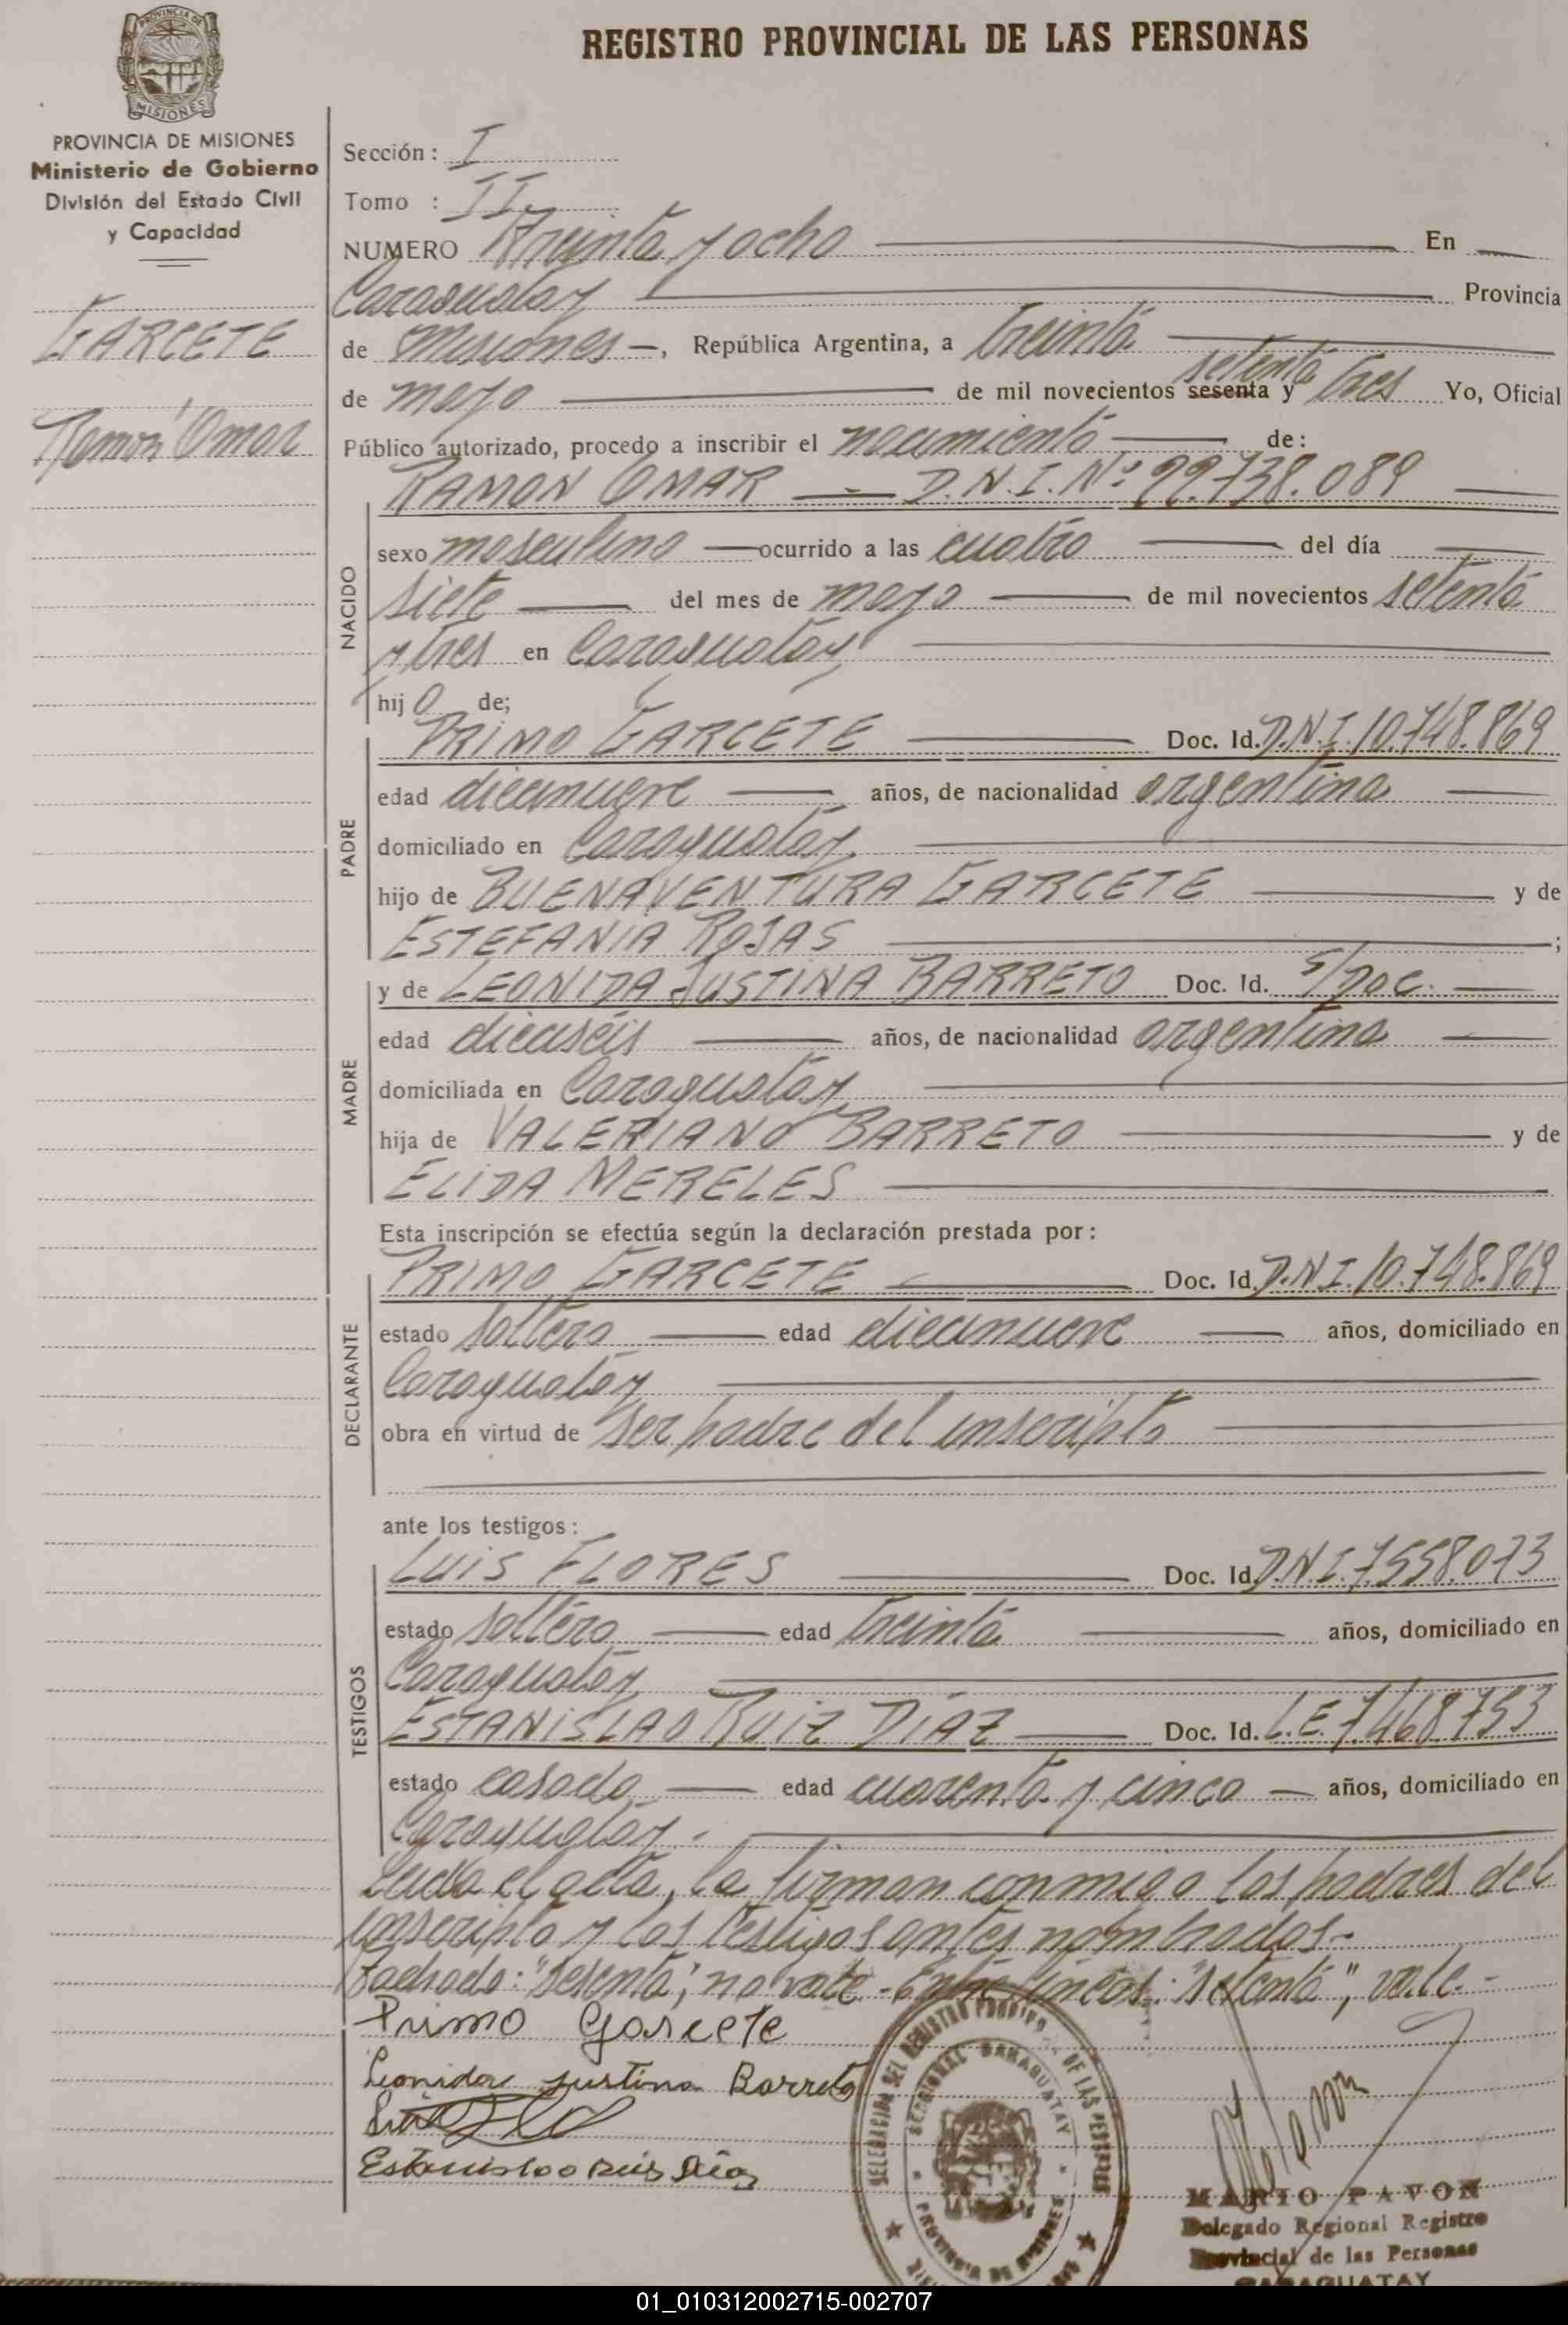 PROVINCIA DE
MISIONES
REGISTRO PROVINCIAL DE LAS PERSONAS
PROVINCIA DE MISIONES
Ministerio de Gobierno
División del Estado Civil
y Capacidad
GARCETE
Ramón Omar
Sección: I
Tomo : II
NUMERO Treinta y ocho En
Caraguatay Provincia
de Misiones, República Argentina, a treinta
setenta
de mayo de mil novecientos sesenta y tres Yo, Oficial
Público autorizado, procedo a inscribir el nacimiento de:
NACIDO
RAMON OMAR — D.N.I. Nº 22.738.089
sexo masculino ocurrido a las cuatro del día
siete del mes de mayo de mil novecientos setenta
y tres en Caraguatay
hijo de;
PADRE
PRIMO GARCETE Doc. Id. D.N.I. 10.748.869
edad diecinueve años, de nacionalidad argentina
domiciliado en Caraguatay
hijo de BUENAVENTURA GARCETE y de
ESTEFANIA ROJAS ;
MADRE
y de LEONIDA JUSTINA BARRETO Doc. Id. S/Doc.
edad dieciseis años, de nacionalidad argentina
domiciliada en Caraguatay
hija de VALERIANO BARRETO y de
ELIDA MERELES
Esta inscripción se efectúa según la declaración prestada por:
DECLARANTE
PRIMO GARCETE Doc. Id. D.N.I. 10.748.869
estado soltero edad diecinueve años, domiciliado en
Caraguatay
obra en virtud de ser padre del inscripto
ante los testigos:
TESTIGOS
LUIS FLORES Doc. Id. D.N.I. 7.558.073
estado soltero edad treinta años, domiciliado en
Caraguatay
ESTANISLAO RUIZ DÍAZ Doc. Id. L.E. 7.468.753
estado casado edad cuarenta y cinco años, domiciliado en
Caraguatay.-
Leida el acta, la firman conmigo los padres del
inscripto y los testigos antes nombrados.-
Tachado: "sesenta", no vale.- Entre lineas: "setenta", vale.-
Primo Garcete
Leonida Justina Barreto
Estanislao Ruis Dias
DELEGACION DEL REGISTRO PROVINCIAL DE LAS PERSONAS
SECCIONAL CARAGUATAY
PROVINCIA DE MISIONES
MARIO PAVON
Delegado Regional Registro
Provincial de las Personas
CARAGUATAY
01_010312002715-002707